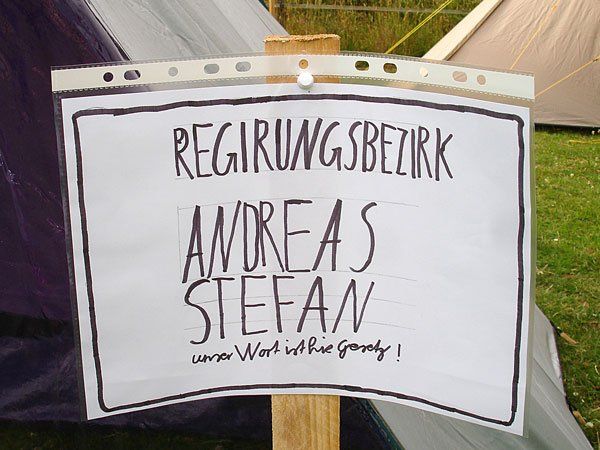 REGIRUNGSBEZIRK
ANDREAS
STEFAN
unser Wort ist hie Gesetz!